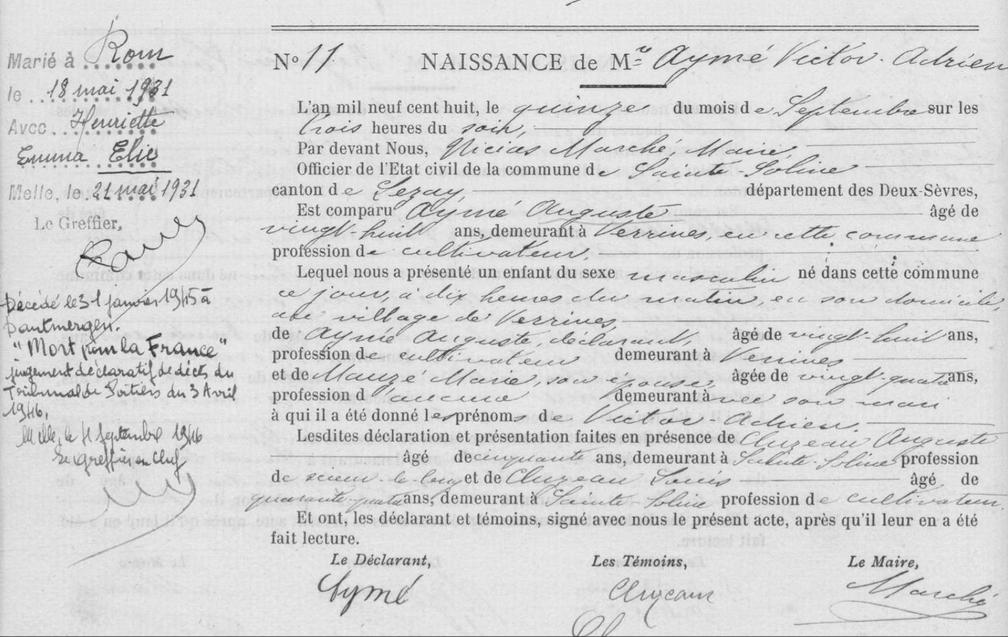 Marié à Rom
le 18 mai 1931
Avec Henriette
Emma Elie
Melle, le 21 mai 1931
Le Greffier,
Décédé le 31 janvier 1945 à
Dautmergen.
"Mort pour la France"
jugement déclaratif de décès du
Tribunal de Poitiers du 3 Avril
1946.
Melle, le 4 Septembre 1946
Le greffier en Chef
N° 11 NAISSANCE de M Aymé Victor Adrien
L'an mil neuf cent huit, le quinze du mois de Septembre sur les
trois heures du soir,
Par devant Nous, Nicias Marché, Maire
Officier de l'Etat civil de la commune de Sainte Soline
canton de Lezay département des Deux-Sèvres,
Est comparu Aymé Auguste âgé de
vingt-huit ans, demeurant à Verrines, en cette commune
profession de cultivateur.
Lequel nous a présenté un enfant du sexe masculin né dans cette commune
ce jour, à dix heures du matin, en son domicile
au village de Verrines,
de Aymé Auguste, déclarant, âgé de vingt-huit ans,
profession de cultivateur demeurant à Verrines
et de Mauzé Marie, son épouse âgée de vingt-quatre ans,
profession d'aucune demeurant avec son mari
à qui il a été donné les prénoms de Victor Adrien.
Lesdites déclaration et présentation faites en présence de Cluzeau Auguste
âgé de cinquante ans, demeurant à Sainte-Soline profession
de et de Cluzeau Louis âgé de
quarante-quatre ans, demeurant à Sainte-Soline profession de cultivateur
Et ont, les déclarant et témoins, signé avec nous le présent acte, après qu'il leur en a été
fait lecture.
Le Déclarant, Les Témoins, Le Maire,
Aymé Cluzeau Marché